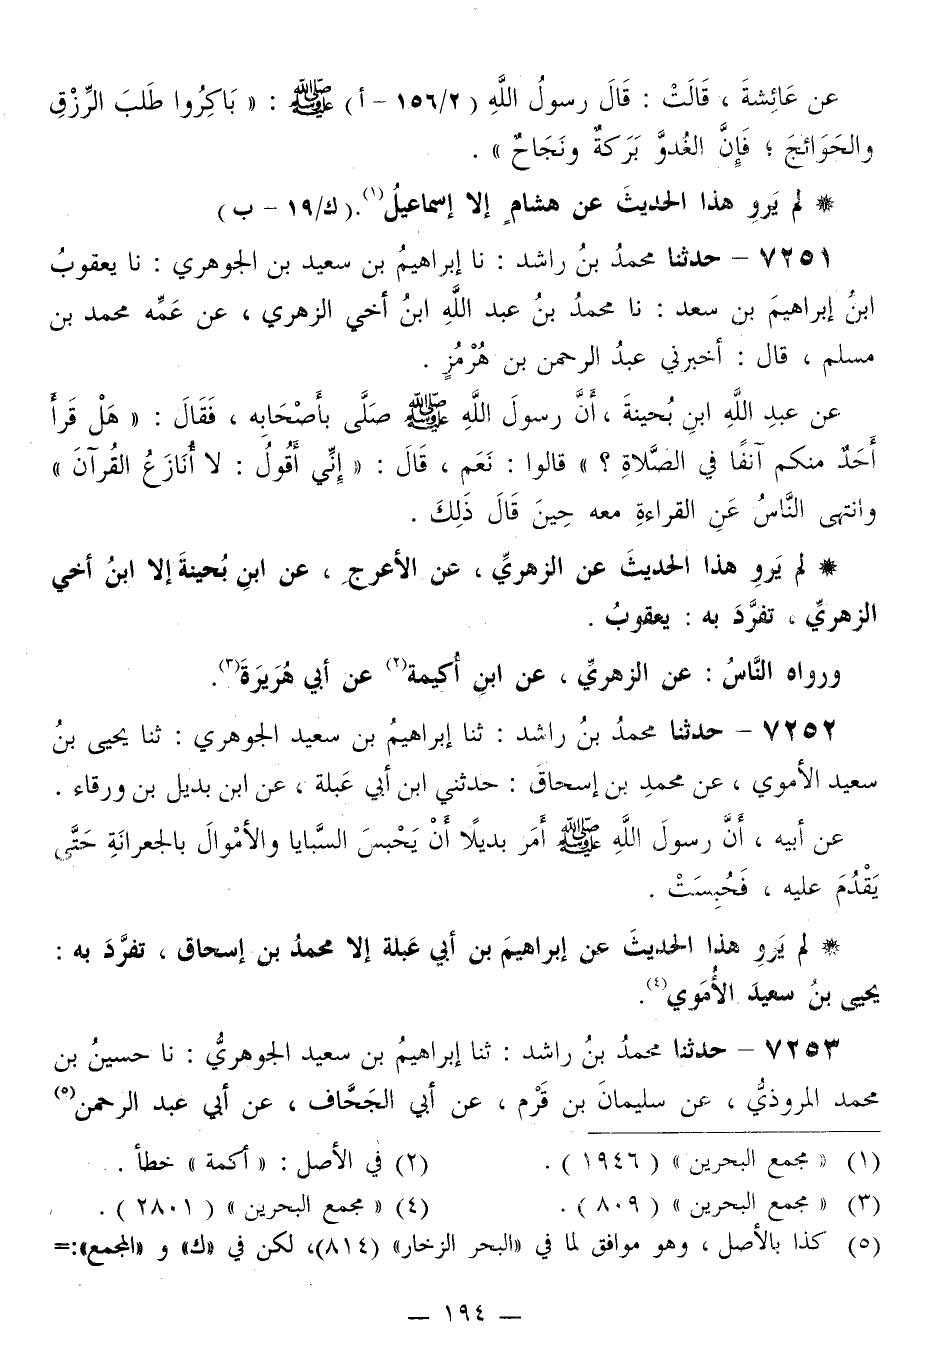 عن عَائِشةَ ، قَالَتْ : قَالَ رسولُ اللَّهِ ( ١٥٦/٢ – أ ) ﷺ : « بَاكِرُوا طَلبَ الرِّزْقِ
والحَوَائجَ ؛ فَإِنَّ الغُدوَّ بَرَكةٌ ونَجَاحٌ » .
* لم يَروِ هذا الحديثَ عن هشامٍ إلا إسماعيلُ(١).( ك/١٩ – ب )
٧٢٥١ – حدثنا محمدُ بنُ راشد : نا إبراهيمُ بن سعيد بن الجوهري : نا يعقوبُ
ابنُ إبراهيمَ بن سعد : نا محمدُ بنُ عبد اللَّهِ ابنُ أخي الزهري ، عن عَمِّه محمد بن
مسلم ، قال : أخبرني عبدُ الرحمن بن هُرْمُزٍ .
عن عبدِ اللَّهِ ابنِ بُحينةَ ، أَنَّ رسولَ اللَّهِ ﷺ صَلَّى بأَصْحَابِه ، فَقَالَ : « هَلْ قَرأَ
أَحَدٌ منكم آنفًا في الصَّلاةِ ؟ » قالوا : نَعَم ، قَالَ : « إِنِّي أَقُولُ : لا أُنَازَعُ القُرآنَ »
وانتهى النَّاسُ عَنِ القراءةِ معه حِينَ قَالَ ذَلِكَ .
* لم يَروِ هذا الحديثَ عن الزهريِّ ، عن الأعرجِ ، عن ابنِ بُحينةَ إلا ابنُ أخي
الزهريِّ ، تفرَّدَ به : يعقوبُ .
ورواه النَّاسُ : عن الزهريِّ ، عن ابنِ أُكيمة(٢) عن أبي هُرَيرَةَ(٣).
٧٢٥٢ – حدثنا محمدُ بنُ راشد : ثنا إبراهيمُ بن سعيد الجوهري : ثنا يحيى بنُ
سعيد الأموي ، عن محمدِ بن إسحاقَ : حدثني ابن أبي عَبلة ، عن ابن بديل بن ورقاء .
عن أبيه ، أَنَّ رسولَ اللَّهِ ﷺ أَمَر بديلًا أَنْ يَحْبسَ السَّبايا والأمْوالَ بالجعرانَةِ حَتَّى
يَقْدُمَ عليه ، فَحُبِسَتْ .
* لم يَروِ هذا الحديثَ عن إبراهيمَ بن أبي عَبلة إلا محمدُ بن إسحاق ، تفرَّدَ به :
يحيى بنُ سعيدَ الأُمَوي(٤).
٧٢٥٣ – حدثنا محمدُ بنُ راشد : ثنا إبراهيمُ بن سعيد الجوهريُّ : نا حسينُ بن
محمد المروذيُّ ، عن سليمانَ بن قَرْم ، عن أبي الجَحَّاف ، عن أبي عبد الرحمن(٥)
(١) « مجمع البحرين » ( ١٩٤٦ ) .
(٢) في الأصل : « أكمة » خطأ .
(٣) « مجمع البحرين » ( ٨٠٩ ) .
(٤) « مجمع البحرين » ( ٢٨٠١ ) .
(٥) كذا بالأصل ، وهو موافق لما في «البحر الزخار» (٨١٤)، لكن في «ك» و «المجمع»:=
— ١٩٤ —